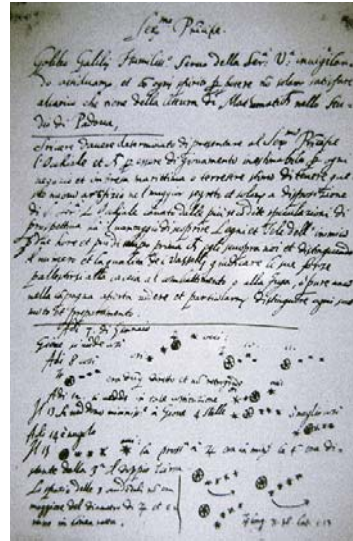 Ser.mo Principe.
Galileo Galilej Humiliss.o Servo della Ser.a V.a invigilan-
do assiduamte, et cō ogni spirito p potere nō solam satisfare
alcarico che tiene della lettura di Mathematich nello Stu-
dio di Padova,
Scrivere d'avere determinato di presentare al Ser.mo Principe
l'Occhiale et p essere di giovamento inestimabile p ogni
negocio et impresa marittima o terrestre stimo di tenere que-
sto nuovo artifizio nel maggior segreto et solam a disposizione
di S. Ser. L'Occhiale cavato dalle più recondite speculazioni di
prospettiva ha il vantaggio di scoprire Legni et Vele dell'inimico
p due hore et più di tempo prima ch egli scuopra noi et distinguendo
il numero et la qualità de i Vasselli giudicare le sue forze
pallestirsi alla caccia al combattimento o alla fuga, o pure anco
nella capagna aperta vedere et particolarm distinguere ogni suo
moto et preparamento.
Adi 7. di Gennaio
Giove si vedde così
Adi 8 così
Adi 12. si vedde in tale costituzione
Il 13 si veddono a Giove 4 stelle
Adi 14 è nugolo
Il 15
la 4a era di-
stante dalla 3a il doppio
Lo spazio delle 3
maggiore del diametro di
in linea retta.